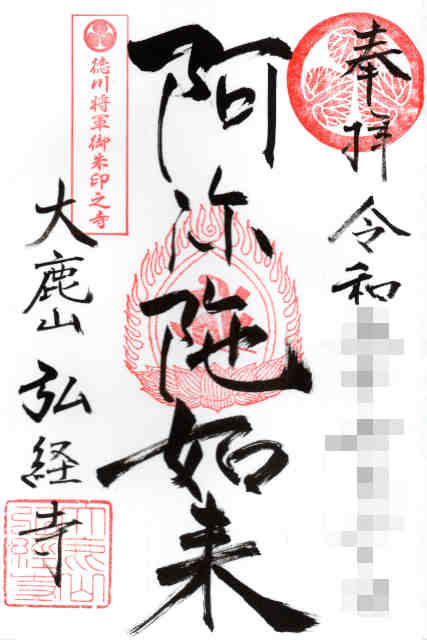 奉拝
令和
阿弥陀如来
徳川将軍御朱印之寺
大鹿山
弘経寺
大鹿山
弘経寺